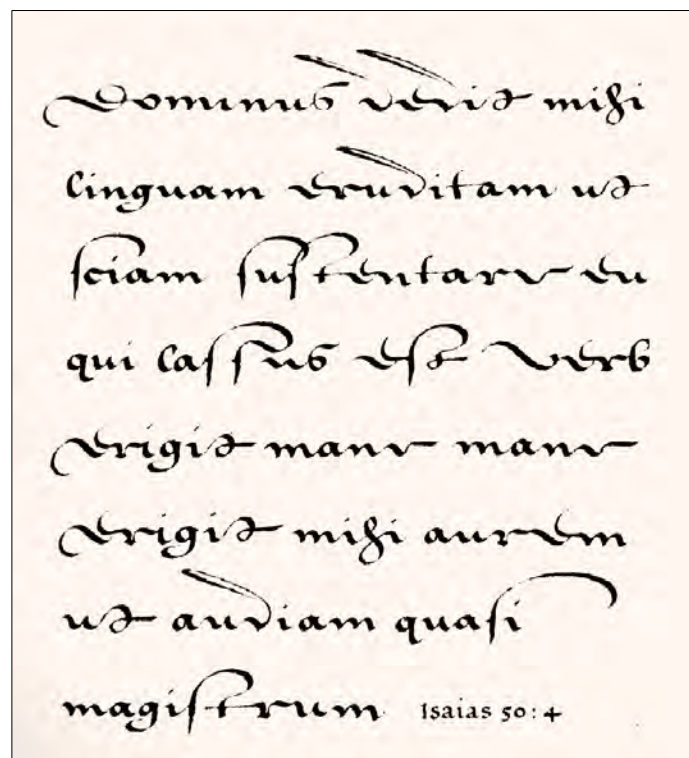 Dominus dedit mihi
linguam eruditam ut
sciam sustentare eu
qui lassus est verb
erigit mane mane
erigit mihi aurem
ut audiam quasi
magistrum Isaias 50:4